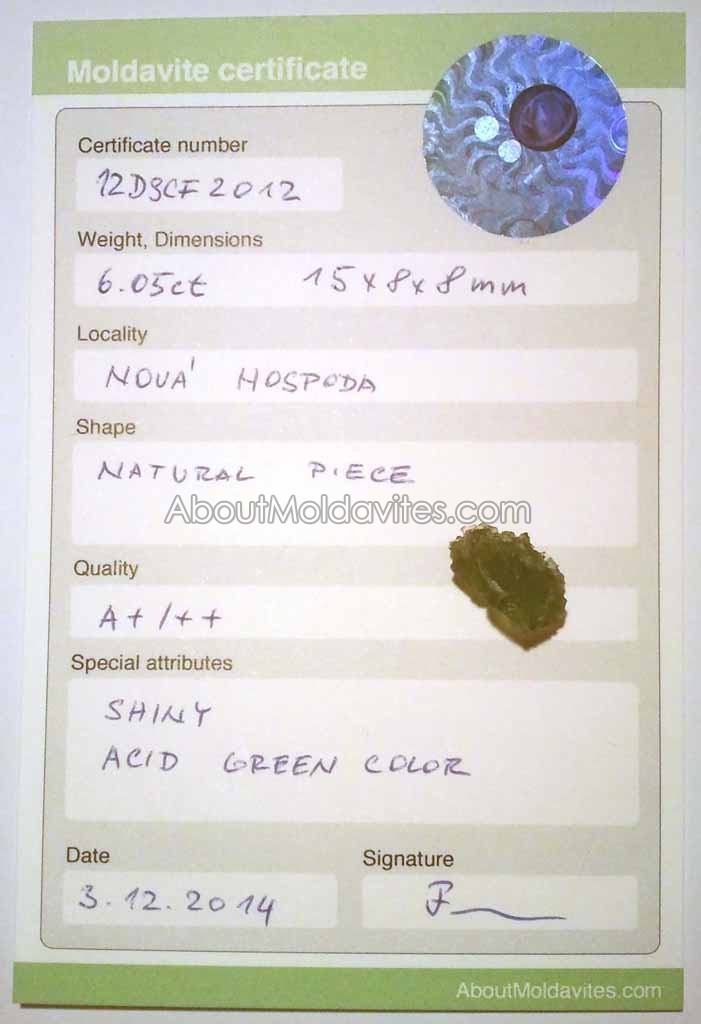 Moldavite certificate
Certificate number
12DSCF2012
Weight, Dimensions
6.05ct 15x8x8mm
Locality
NOVÁ HOSPODA
Shape
NATURAL PIECE
AboutMoldavites.com
Quality
A+/++
Special attributes
SHINY
ACID GREEN COLOR
Date
3.12.2014
Signature
AboutMoldavites.com